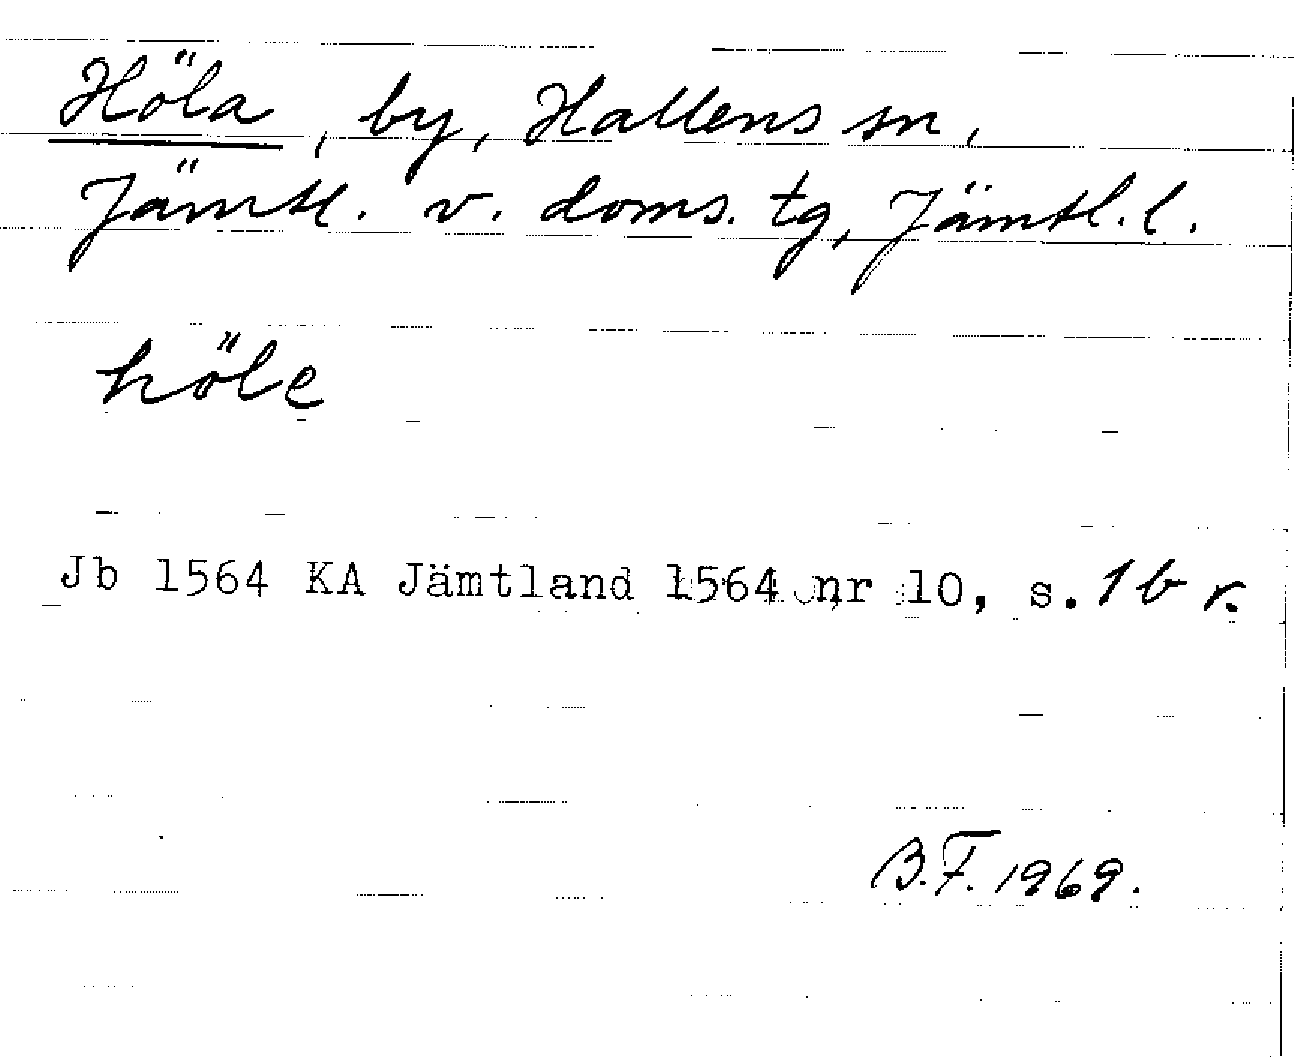 Höla, by, Hallens sn,
Jämtl. v. doms. tg, Jämtl. l.
höle
Jb 1564 KA Jämtland 1564 nr 10, s. 1 b r.
B.F. 1969.